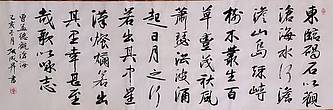 東臨碣石以觀
滄海水何澹
澹山島竦峙
樹木叢生百
草豐茂秋風
蕭瑟洪波湧
起日月之行
若出其中星
漢燦爛若出
其里幸甚至
哉歌以詠志
曹孟德觀滄海
書